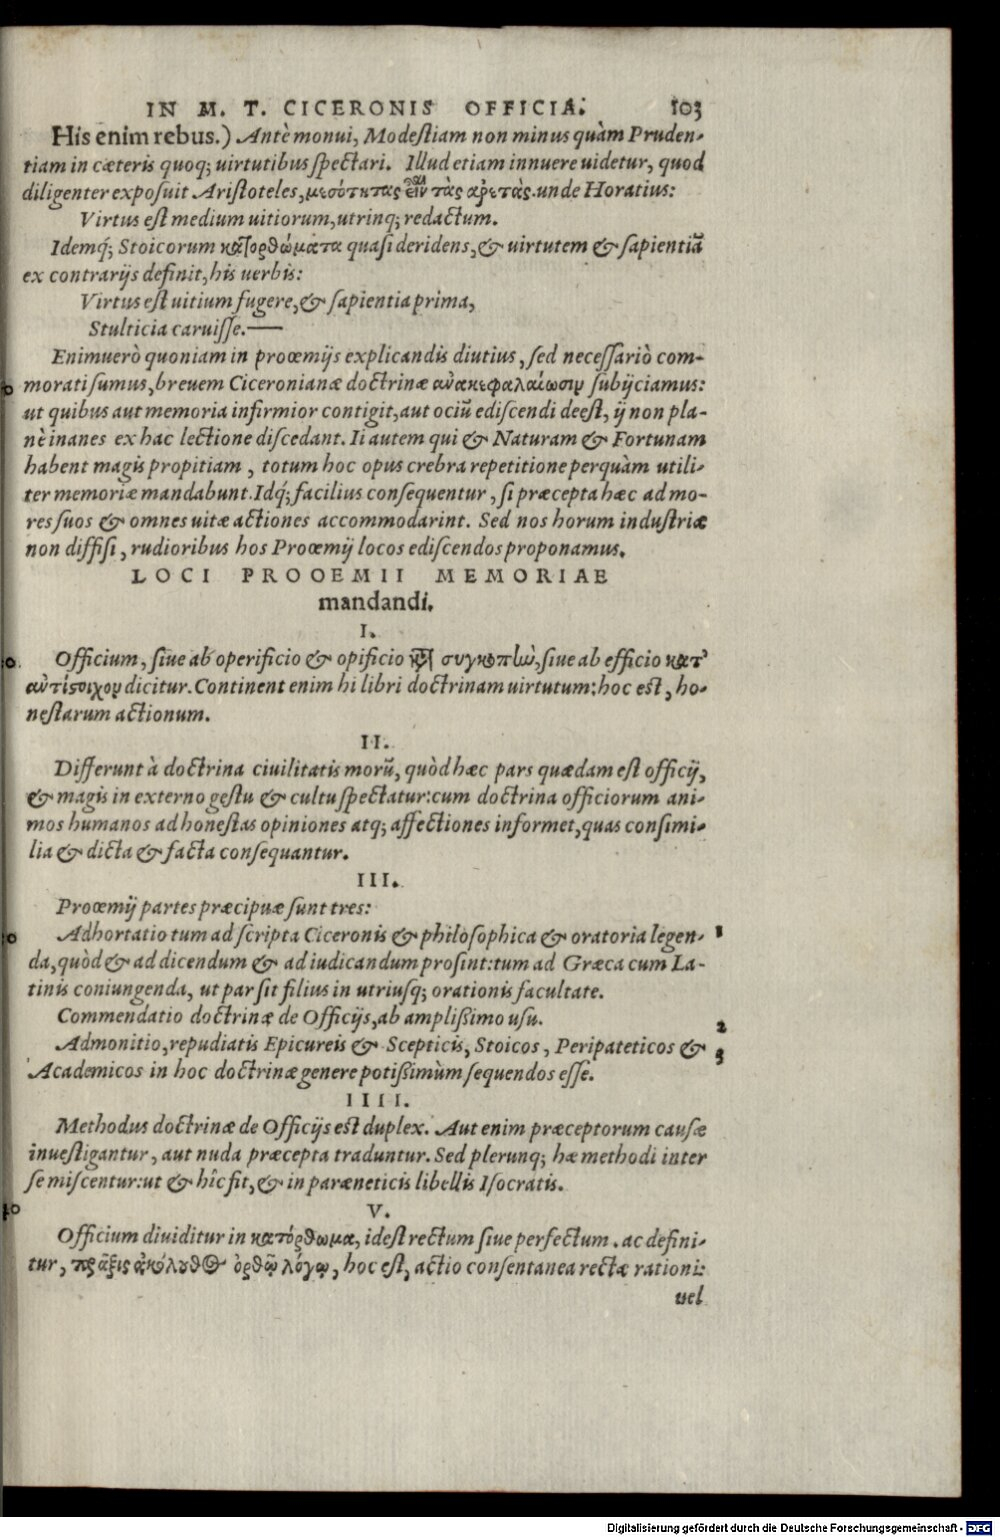 IN M. T. CICERONIS OFFICIA. 103
His enim rebus.) Antè monui, Modestiam non minus quàm Pruden-
tiam in cæteris quoq; uirtutibus spectari. Illud etiam innuere uidetur, quod
diligenter exposuit Aristoteles, μεσότητας εἶναι τὰς ἀρετὰς. unde Horatius:
Virtus est medium uitiorum, utrinq; redactum.
Idemq́; Stoicorum κατορθώματα quasi deridens, & uirtutem & sapientiā
ex contrarijs definit, his uerbis:
Virtus est uitium fugere, & sapientia prima,
Stulticia caruisse.—
Enimuerò quoniam in proœmijs explicandis diutius, sed necessariò com-
morati sumus, breuem Ciceronianæ doctrinæ ἀνακεφαλαίωσιν subijciamus:
ut quibus aut memoria infirmior contigit, aut ociū ediscendi deest, ij non pla-
nè inanes ex hac lectione discedant. Ii autem qui & Naturam & Fortunam
habent magis propitiam, totum hoc opus crebra repetitione perquàm utili-
ter memoriæ mandabunt. Idq́; facilius consequentur, si præcepta hæc ad mo-
res suos & omnes uitæ actiones accommodarint. Sed nos horum industriæ
non diffisi, rudioribus hos Proœmij locos ediscendos proponamus.
LOCI PROOEMII MEMORIAE
mandandi.
I.
Officium, siue ab operificio & opificio κατὰ συγκοπὴν, siue ab efficio κατ᾽
ἀντίστοιχον dicitur. Continent enim hi libri doctrinam uirtutum: hoc est, ho-
nestarum actionum.
II.
Differunt à doctrina ciuilitatis morū, quòd hæc pars quædam est officij,
& magis in externo gestu & cultu spectatur: cum doctrina officiorum ani-
mos humanos ad honestas opiniones atq; affectiones informet, quas consimi-
lia & dicta & facta consequantur.
III.
Proœmij partes præcipuæ sunt tres:
Adhortatio tum ad scripta Ciceronis & philosophica & oratoria legen- 1
da, quòd & ad dicendum & ad iudicandum prosint: tum ad Græca cum La-
tinis coniungenda, ut par sit filius in utriusq; orationis facultate.
Commendatio doctrinæ de Officijs, ab amplißimo usu. 2
Admonitio, repudiatis Epicureis & Scepticis, Stoicos, Peripateticos & 3
Academicos in hoc doctrinæ genere potißimùm sequendos esse.
IIII.
Methodus doctrinæ de Officijs est duplex. Aut enim præceptorum causæ
inuestigantur, aut nuda præcepta traduntur. Sed plerunq; hæ methodi inter
se miscentur: ut & hîc fit, & in paræneticis libellis Isocratis.
V.
Officium diuiditur in κατόρθωμα, id est rectum siue perfectum. ac defini-
tur, πρᾶξις ἀκόλουθος ὀρθῷ λόγῳ, hoc est, actio consentanea rectæ rationi:
uel
Digitalisierung gefördert durch die Deutsche Forschungsgemeinschaft - DFG